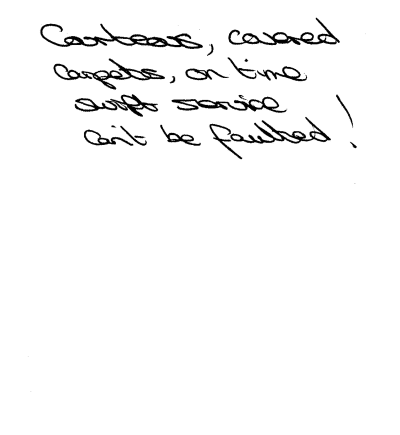 Courteous, covered
carpets, on time
swift service
can't be faulted!